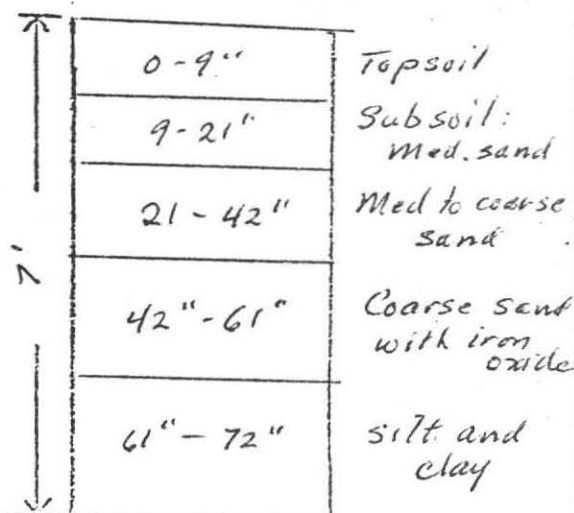 0-9" Topsoil
9-21" Subsoil:
Med. sand
21-42" Med to coarse
sand
7'
42"-61" Coarse sand
with iron
oxide
61"-72" silt and
clay